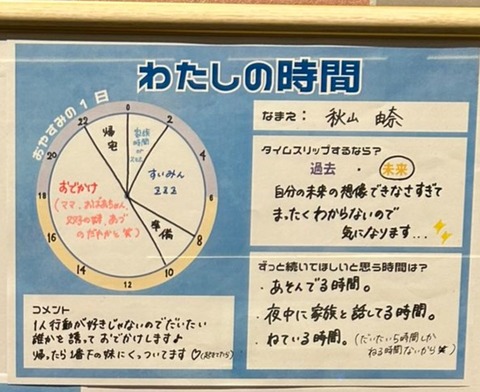 わたしの時間
おやすみの1日
0
2
6
8
10
12
14
16
18
20
22
帰宅
家族
時間が
すいみん
zzz
準備
おでかけ
(ママ、おばあちゃん
コメント
1人行動が好きじゃないのでだいたい
誰かを誘っておでかけしますよ
帰ったら1番下の妹にくっついてます♡
なまえ: 秋山 由奈
タイムスリップするなら?
過去 ・ 未来
自分の未来の想像できなさすぎて
まったくわからないので
気になります...
ずっと続いてほしいと思う時間は?
・あそんでる時間。
・夜中に家族と話してる時間。
・ねている時間。(だいたい5時間しか
ねる時間ないから笑)